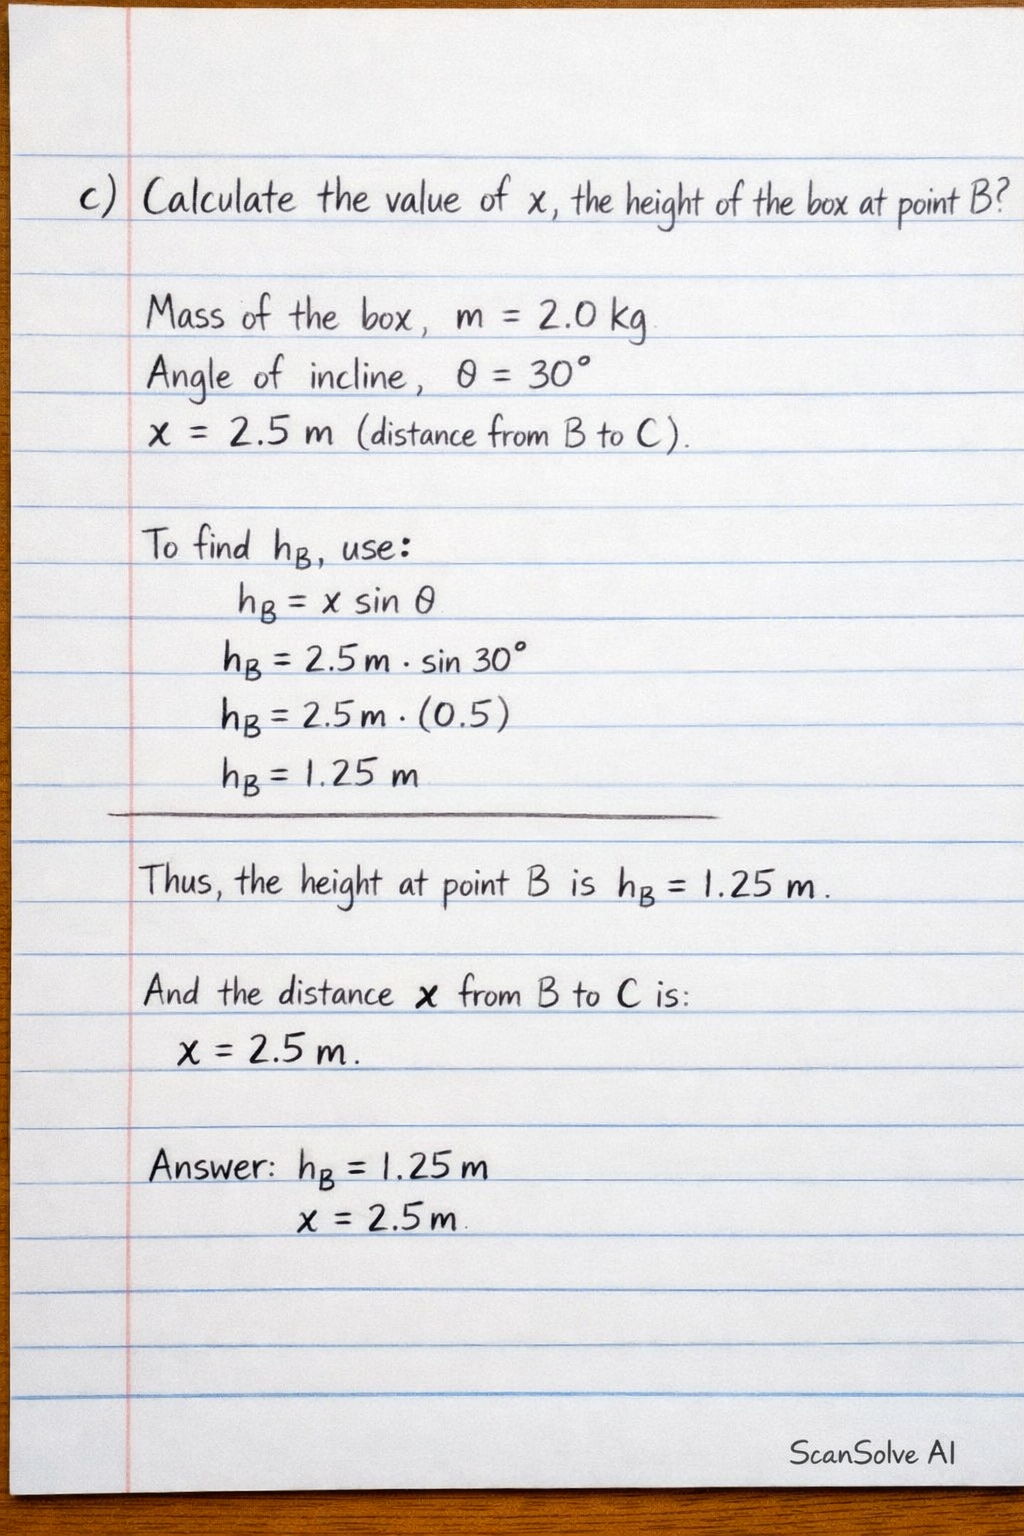 c) Calculate the value of x, the height of the box at point B?
Mass of the box, m = 2.0 kg
Angle of incline, θ = 30°
x = 2.5 m (distance from B to C).
To find h_B, use:
h_B = x sin θ
h_B = 2.5 m · sin 30°
h_B = 2.5 m · (0.5)
h_B = 1.25 m
Thus, the height at point B is h_B = 1.25 m.
And the distance x from B to C is:
x = 2.5 m.
Answer: h_B = 1.25 m
x = 2.5 m.
ScanSolve AI